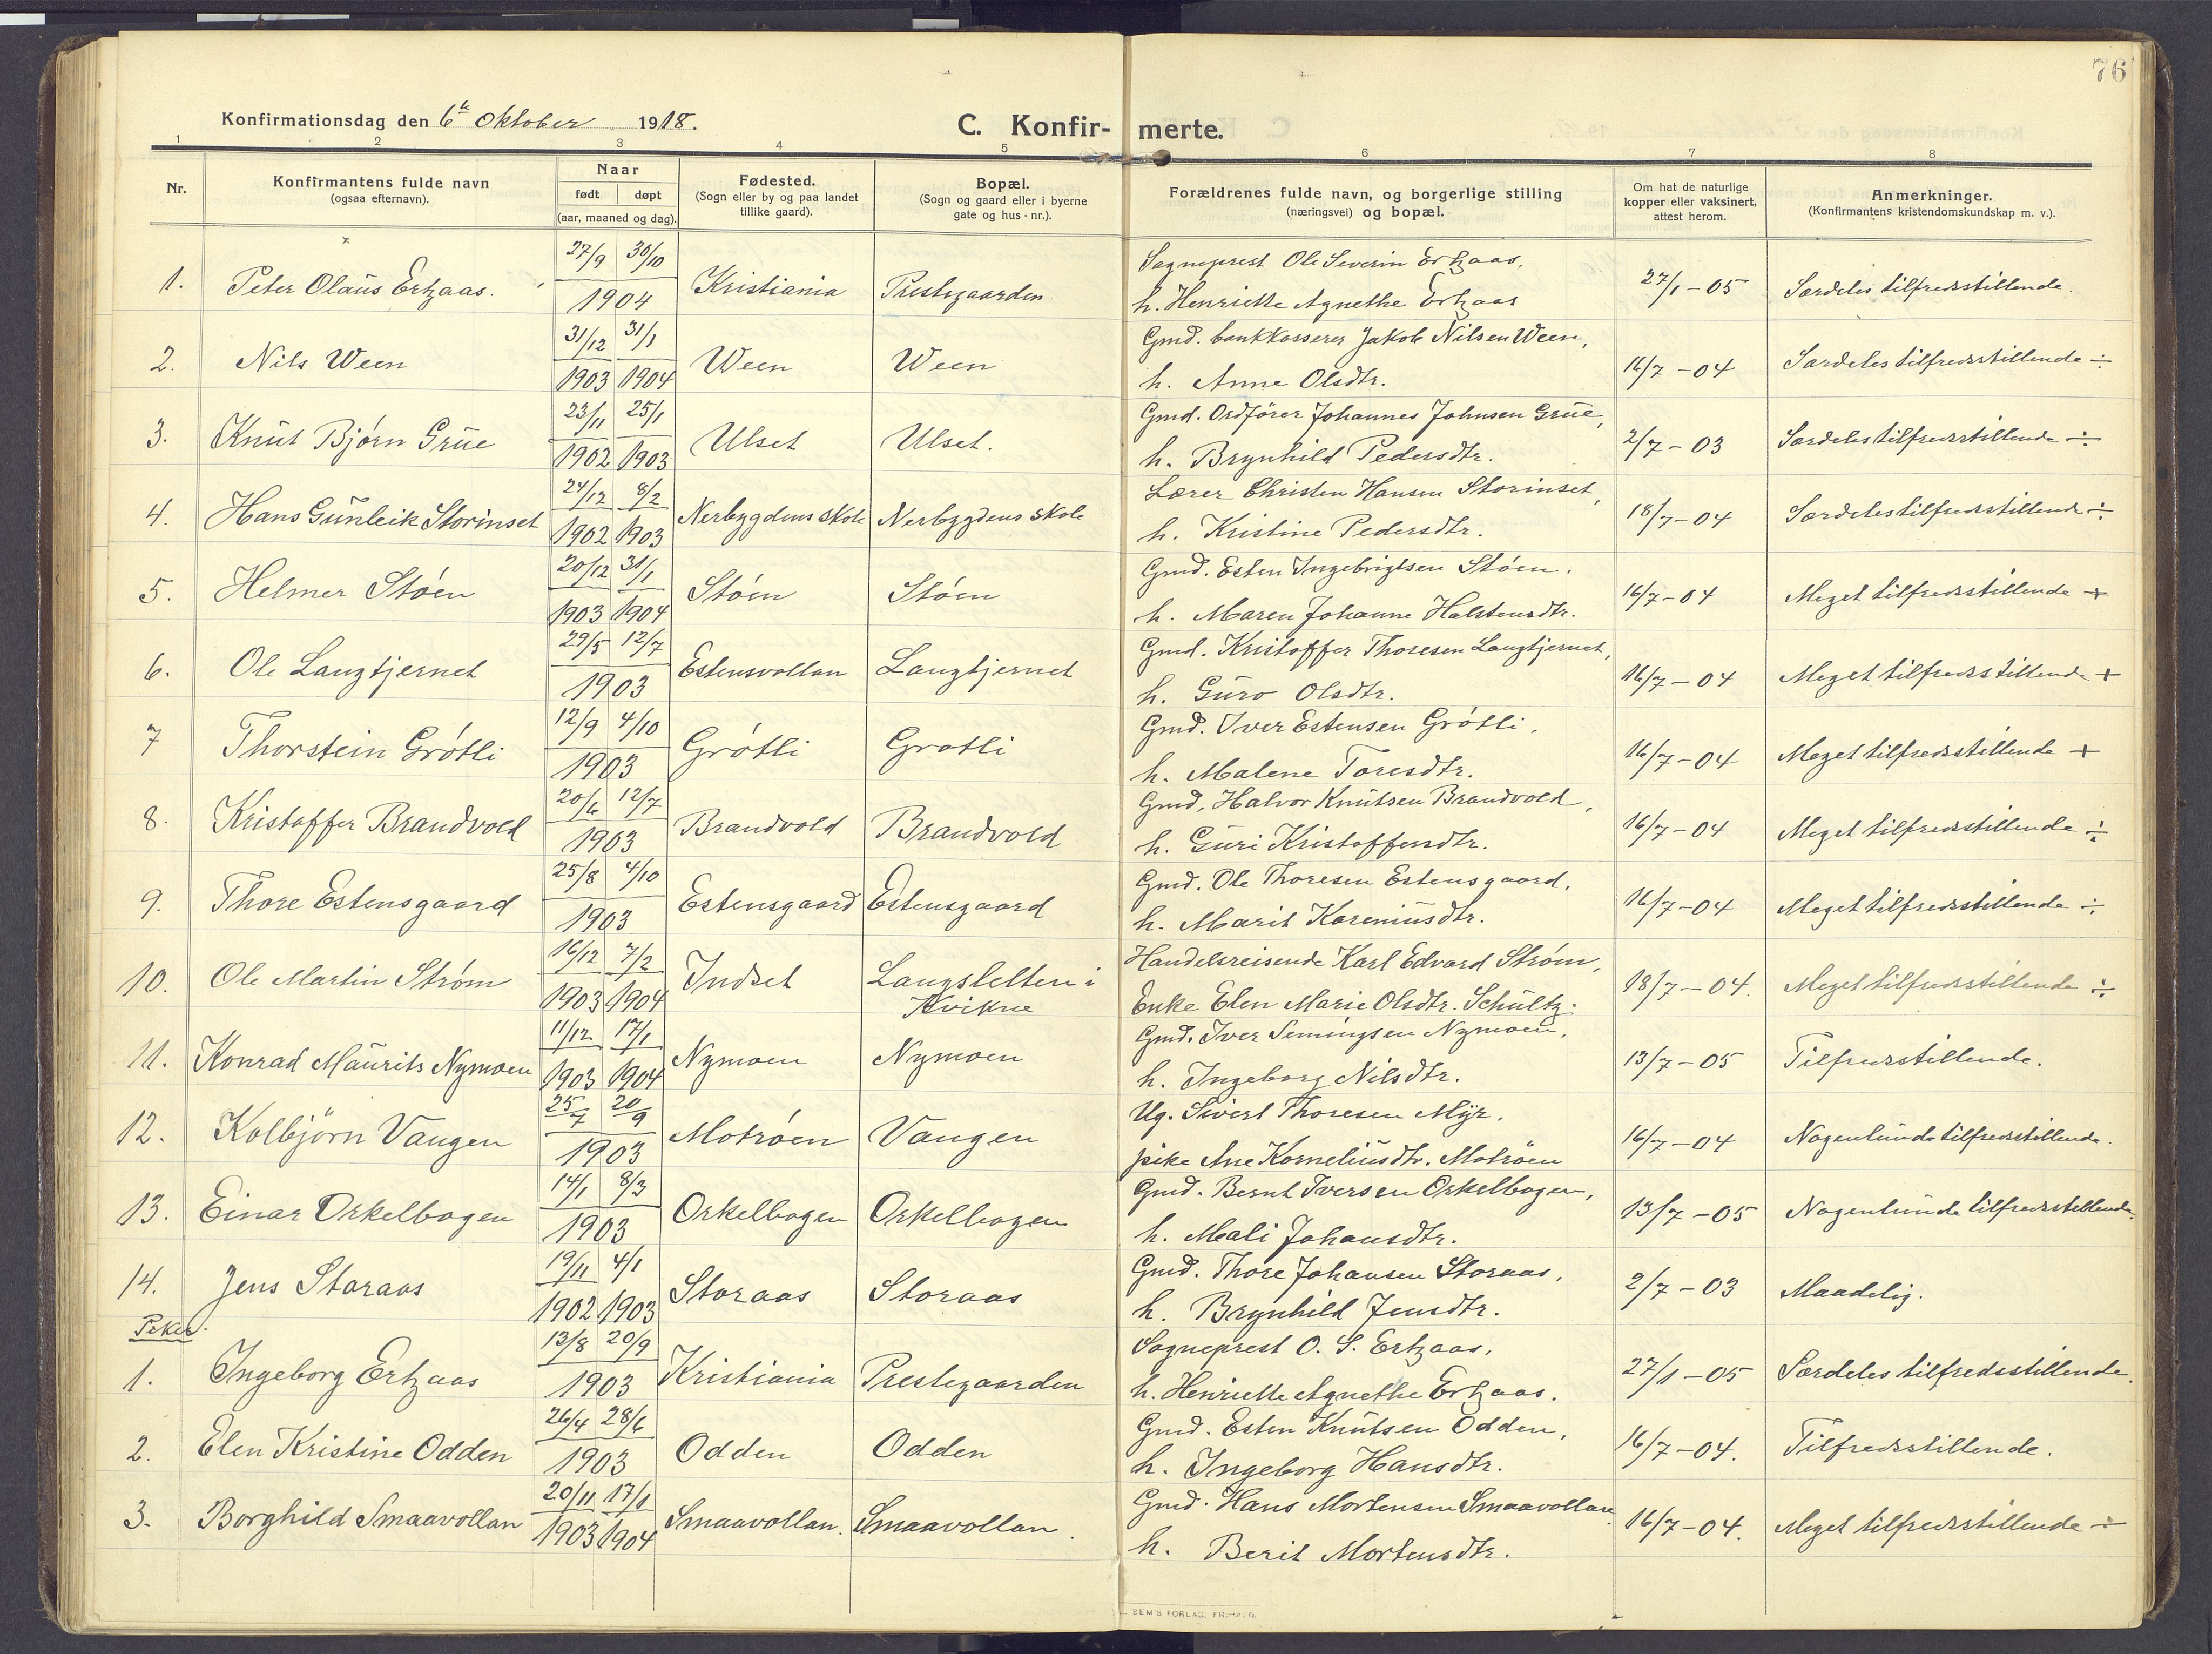 76
Konfirmationsdag den 6te Oktober 1918.
C. Konfirmerte.
1 2 3 4 5 6 7 8
Nr.
Konfirmantens fulde navn
(ogsaa efternavn).
Naar
født døpt
(aar, maaned og dag).
Fødested.
(Sogn eller by og paa landet
tillike gaard).
Bopæl.
(Sogn og gaard eller i byerne
gate og hus-nr.).
Forældrenes fulde navn, og borgerlige stilling
(næringsvei) og bopæl.
Om hat de naturlige
kopper eller vaksinert,
attest herom.
Anmerkninger.
(Konfirmantens kristendomskundskap m. v.).
27/9 30/10 Sogneprest Ole Severin Ertzaas,
1. Peter Olaus Ertzaas. 1904 Kristiania Prestegaarden h. Henriette Agnethe Ertzaas 27/1-05 Særdeles tilfredsstillende.
31/12 31/1 Gmd. bankkasserer Jakob Nilsen Ween,
2. Nils Ween 1903 1904 Ween Ween h. Anne Olsdtr. 16/7-04 Særdeles tilfredsstillende ÷
23/11 25/1 Gmd. Ordfører Johannes Johnsen Grue,
3. Knut Bjørn Grue 1902 1903 Ulset Ulset. h. Brynhild Pedersdtr. 2/7-03 Særdeles tilfredsstillende ÷
24/12 8/2 Lærer Christen Hansen Storinset,
4. Hans Gunleik Storinset 1902 1903 Nerbygdens skole Nerbygdens skole h. Kristine Pedersdtr. 18/7-04 Særdeles tilfredsstillende ÷
20/12 31/1 Gmd. Esten Ingebrigtsen Støen.
5. Helmer Støen 1903 1904 Støen Støen h. Maren Johanne Halstensdtr. 16/7-04 Meget tilfredsstillende +
29/5 12/7 Gmd. Kristoffer Thoresen Langtjernet,
6. Ole Langtjernet 1903 Estensvollan Langtjernet h. Guro Olsdtr. 16/7-04 Meget tilfredsstillende +
12/9 4/10 Gmd. Iver Estensen Grøtli,
7 Thorstein Grøtli 1903 Grøtli Grøtli h. Malene Toresdtr. 16/7-04 Meget tilfredsstillende +
20/6 12/7 Gmd. Halvor Knutsen Brandvold,
8. Kristoffer Brandvold 1903 Brandvold Brandvold h. Guri Kristoffersdtr. 16/7-04 Meget tilfredsstillende ÷
25/8 4/10 Gmd. Ole Thoresen Estensgaard,
9. Thore Estensgaard 1903 Estensgaard Estensgaard h. Marit Koreniusdtr. 16/7-04 Meget tilfredsstillende ÷
16/12 7/2 Handelsreisende Karl Edvard Strøm,
10. Ole Martin Strøm 1903 1904 Indset Langsletten i Kvikne Enke Elen Marie Olsdtr. Schultz. 18/7-04. Meget tilfredsstillende ÷
11/12 17/1 Gmd. Iver Semingsen Nymoen,
11. Konrad Maurits Nymoen 1903 1904 Nymoen Nymoen h. Ingeborg Nilsdtr. 13/7-05 Tilfredsstillende.
25/7 20/9 Ug. Sivert Thoresen Myr,
12. Kolbjörn Vangen 1903 Motrøen Vangen pike Ane Korneliusdtr. Motrøen 16/7-04 Nogenlunde tilfredsstillende.
14/1 8/3 Gmd. Bernt Iversen Orkelbogen,
13. Einar Orkelbogen 1903 Orkelbogen Orkelbogen h. Mali Johansdtr. 13/7-05 Nogenlunde tilfredsstillende.
19/11 4/1 Gmd. Thore Johansen Storaas,
14. Jens Storaas 1902 1903 Storaas Storaas h. Brynhild Jensdtr. 2/7-03 Maadelig.
Piker.
13/8 20/9 Sogneprest O. S. Ertzaas,
1. Ingeborg Ertzaas 1903 Kristiania Prestegaarden h. Henriette Agnethe Ertzaas. 27/1-05 Særdeles tilfredsstillende.
26/4 28/6 Gmd. Esten Knutsen Odden,
2. Elen Kristine Odden 1903 Odden Odden h. Ingeborg Hansdtr. 16/7-04. Tilfredsstillende.
20/11 17/1 Gmd. Hans Mortensen Smaavollan
3. Borghild Smaavollan 1903 1904 Smaavollan. Smaavollan. h. Berit Mortensdtr. 16/7-04. Meget tilfredsstillende ÷
SEM'S FORLAG, FR.HALD.